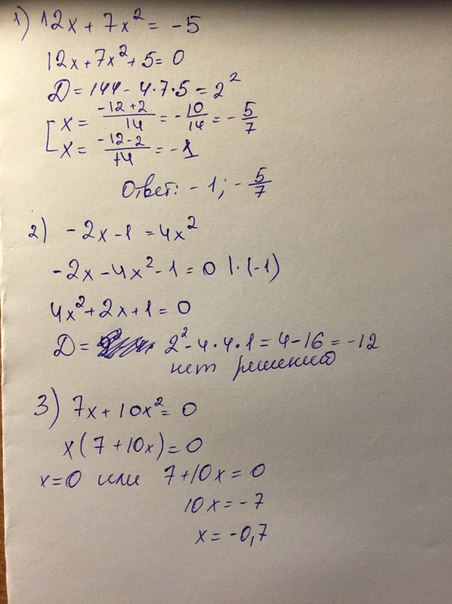 1) 12x + 7x² = -5
12x + 7x² + 5 = 0
D = 144 - 4·7·5 = 2²
[ x = (-12+2)/14 = -10/14 = -5/7
[ x = (-12-2)/14 = -1
Ответ: -1; -5/7
2) -2x - 1 = 4x²
-2x - 4x² - 1 = 0 |·(-1)
4x² + 2x + 1 = 0
D = 2² - 4·4·1 = 4 - 16 = -12
нет решений
3) 7x + 10x² = 0
x(7 + 10x) = 0
x = 0 или 7 + 10x = 0
10x = -7
x = -0,7